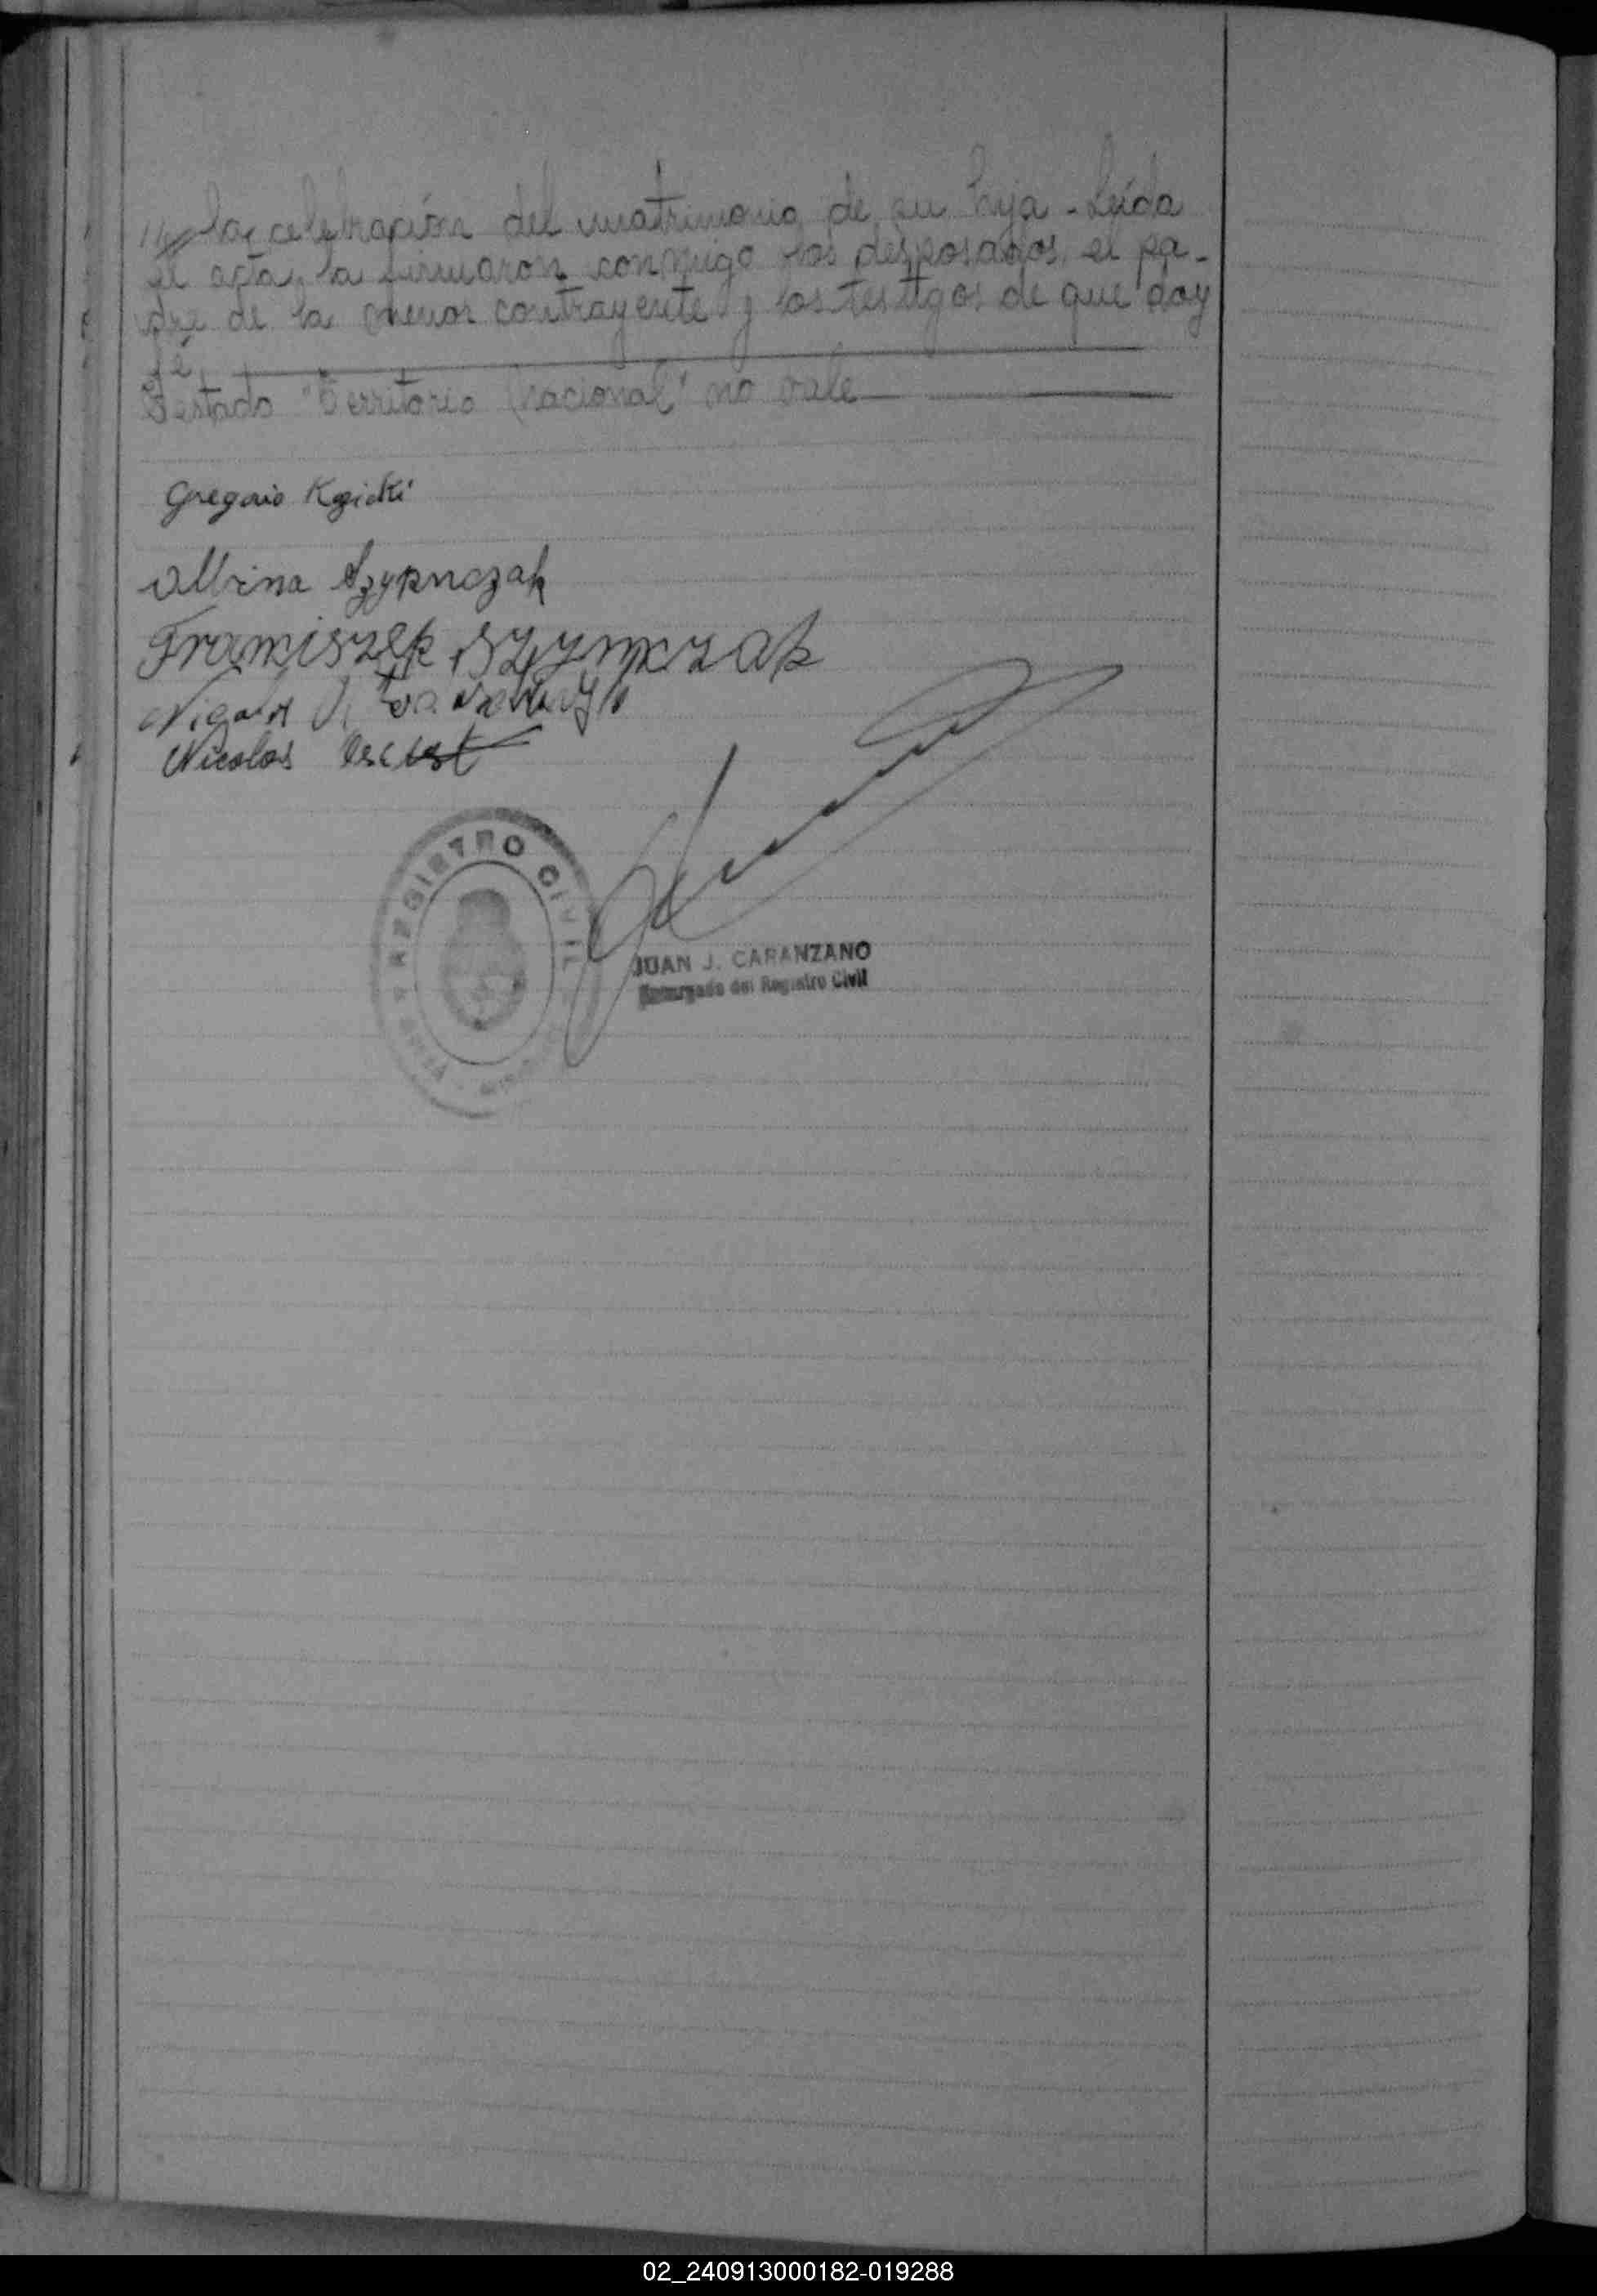 la celebración del matrimonio de su hija - Leída
el acta, la firmaron conmigo los desposados, el pa-
dre de la menor contrayente y los testigos de que doy
fé.
Testado "Territorio Nacional" no vale
Gregorio
Albina
Franciszek Szymczak
Nicolas
REGISTRO CIVIL
JUAN J. CARANZANO
Encargado del Registro Civil
02_240913000182-019288